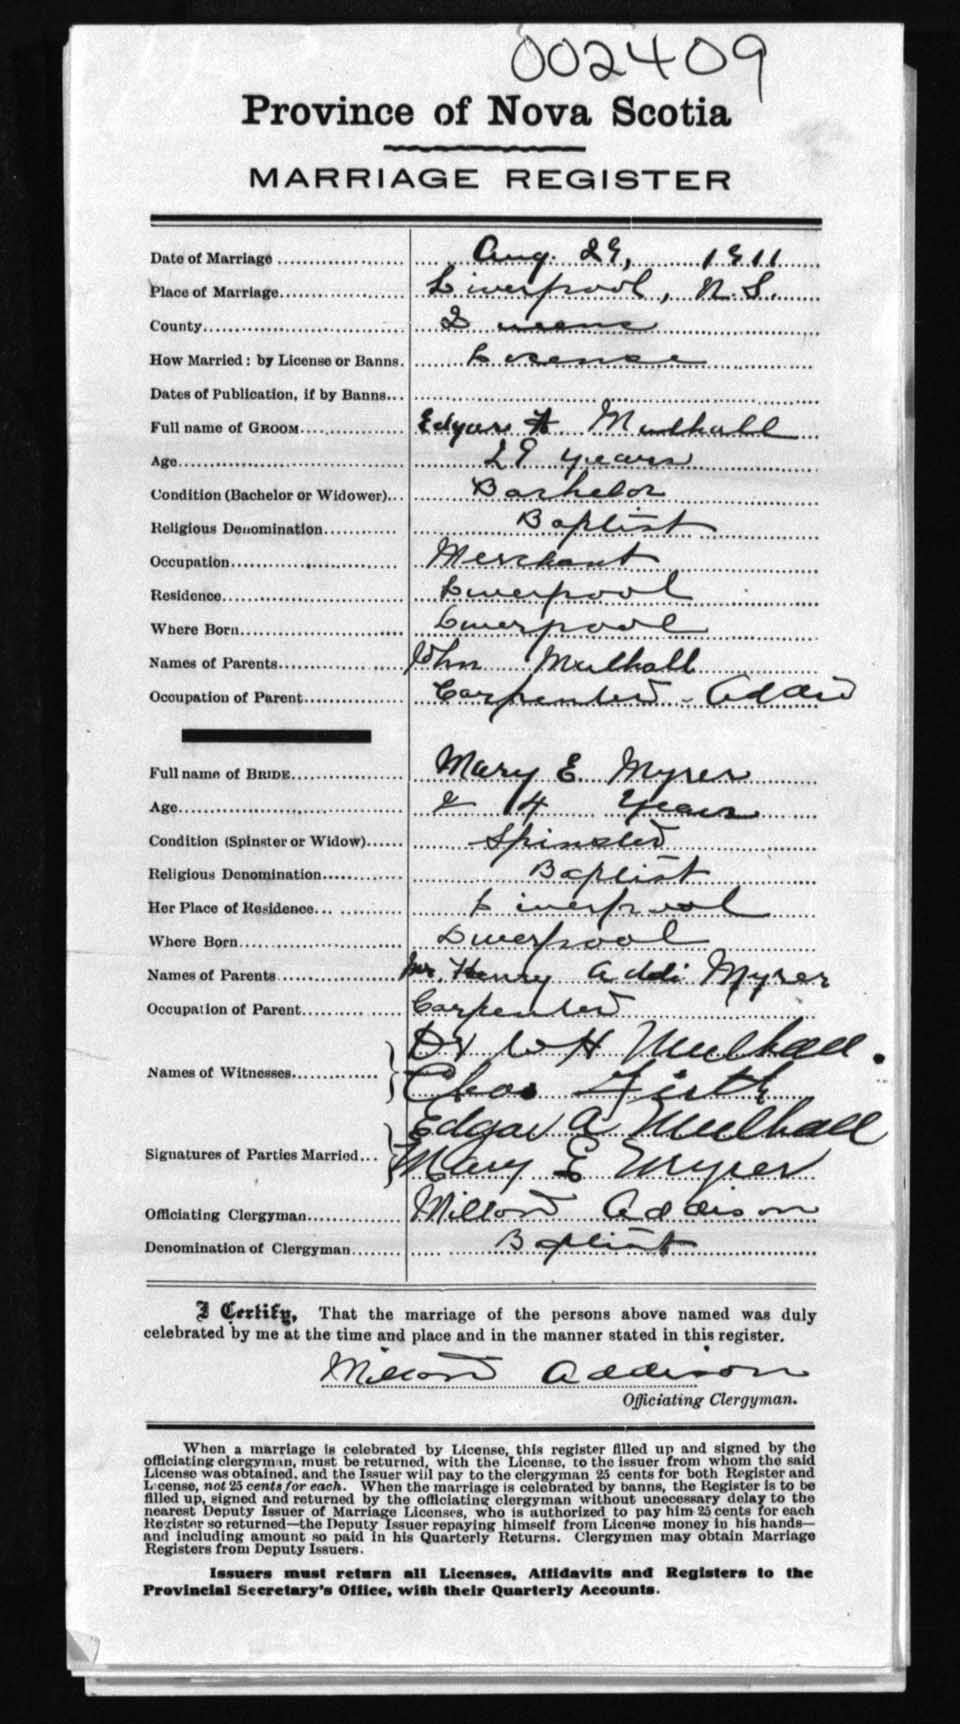 002409
Province of Nova Scotia
MARRIAGE REGISTER
Date of Marriage Aug. 29, 1911
Place of Marriage Liverpool, N.S.
County Queens
How Married: by License or Banns. License
Dates of Publication, if by Banns
Full name of GROOM Edgar A. Mulhall
Age 29 years
Condition (Bachelor or Widower) Bachelor
Religious Denomination Baptist
Occupation Merchant
Residence Liverpool
Where Born Liverpool
Names of Parents John Mulhall
Occupation of Parent Carpenter
Full name of BRIDE Mary E Myrer
Age 24 years
Condition (Spinster or Widow) Spinster
Religious Denomination Baptist
Her Place of Residence Liverpool
Where Born Liverpool
Names of Parents Henry Addi Myrer
Occupation of Parent Carpenter
Names of Witnesses Dr W H Mulhall.
Chas Firth
Signatures of Parties Married Edgar A Mulhall
Mary E Myrer
Officiating Clergyman Milton Addison
Denomination of Clergyman Baptist
I Certify, That the marriage of the persons above named was duly
celebrated by me at the time and place and in the manner stated in this register.
Milton Addison
Officiating Clergyman.
When a marriage is celebrated by License, this register filled up and signed by the
officiating clergyman, must be returned, with the License, to the issuer from whom the said
License was obtained, and the Issuer will pay to the clergyman 25 cents for both Register and
License, not 25 cents for each. When the marriage is celebrated by banns, the Register is to be
filled up, signed and returned by the officiating clergyman without unecessary delay to the
nearest Deputy Issuer of Marriage Licenses, who is authorized to pay him 25 cents for each
Register so returned—the Deputy Issuer repaying himself from License money in his hands—
and including amount so paid in his Quarterly Returns. Clergymen may obtain Marriage
Registers from Deputy Issuers.
Issuers must return all Licenses, Affidavits and Registers to the
Provincial Secretary's Office, with their Quarterly Accounts.